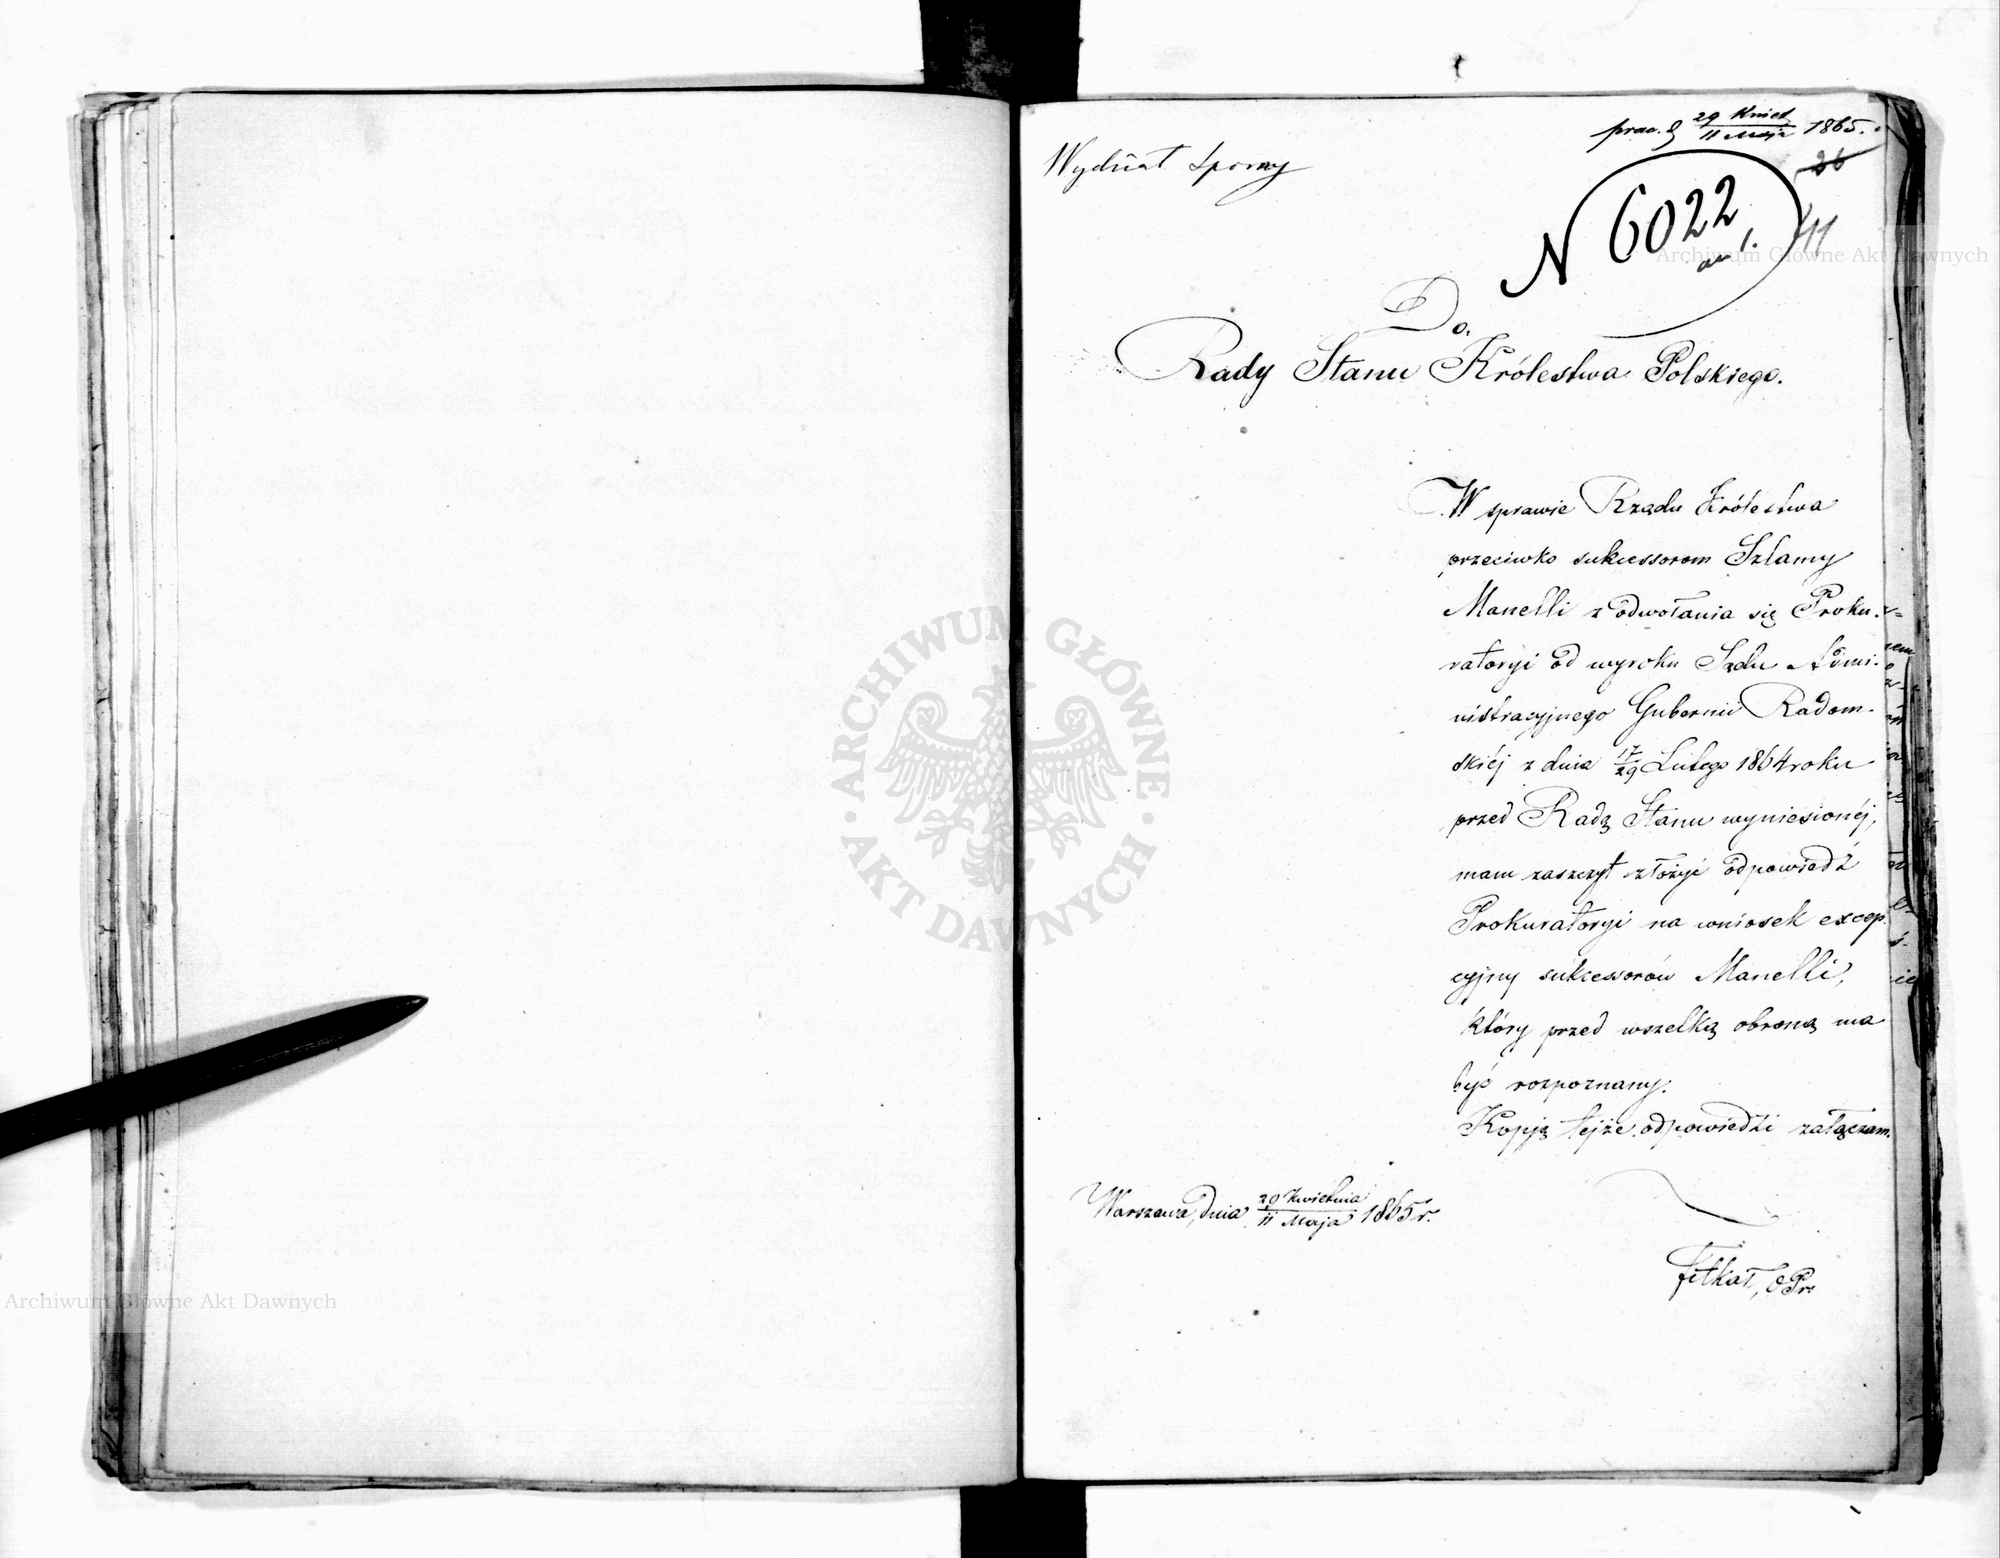 praes. d. 29 Kwiet / 11 Maja 1865.
Wydział Sporny
36
N 6022
an 1.
41
Do
Rady Stanu Królestwa Polskiego.
W sprawie Rządu Królestwa
przeciwko sukcessorom Szlamy
Manelli z odwołania się Proku-
ratoryi od wyroku Sądu Admi-
nistracyjnego Gubernii Radom-
skiéj z dnia 17/29 Lutego 1864 roku
przed Radę Stanu wyniesionéj,
mam zaszczyt złożyć odpowiedź
Prokuratoryi na wniosek excep-
cyjny sukcessorów Manelli,
który przed wszelką obroną ma
być rozpoznany.
Kopją tejże odpowiedzi załączam.
Warszawa, dnia 29 Kwietnia / 11 Maja 1865 r.
Archiwum Główne Akt Dawnych
ARCHIWUM GŁÓWNE
AKT DAWNYCH
Archiwum Główne Akt Dawnych